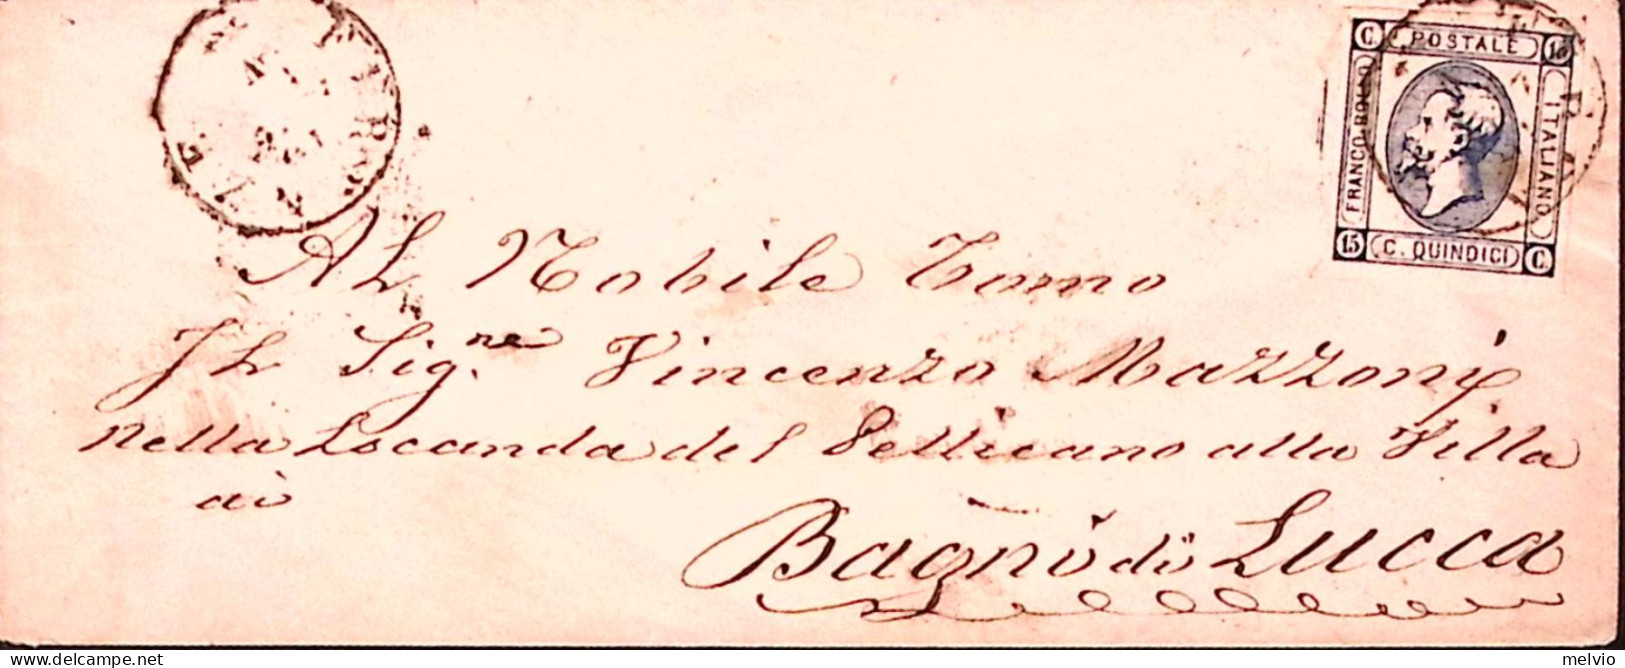 FIRENZE
C. POSTALE 15
FRANCO BOLLO
ITALIANO
15 C. QUINDICI C.
Al Nobile Uomo
Il Sig.re Vincenzo Mazzoni
nella Locanda del Pellicano alla Villa
ai
Bagni di Lucca
delcampe.net
melvio